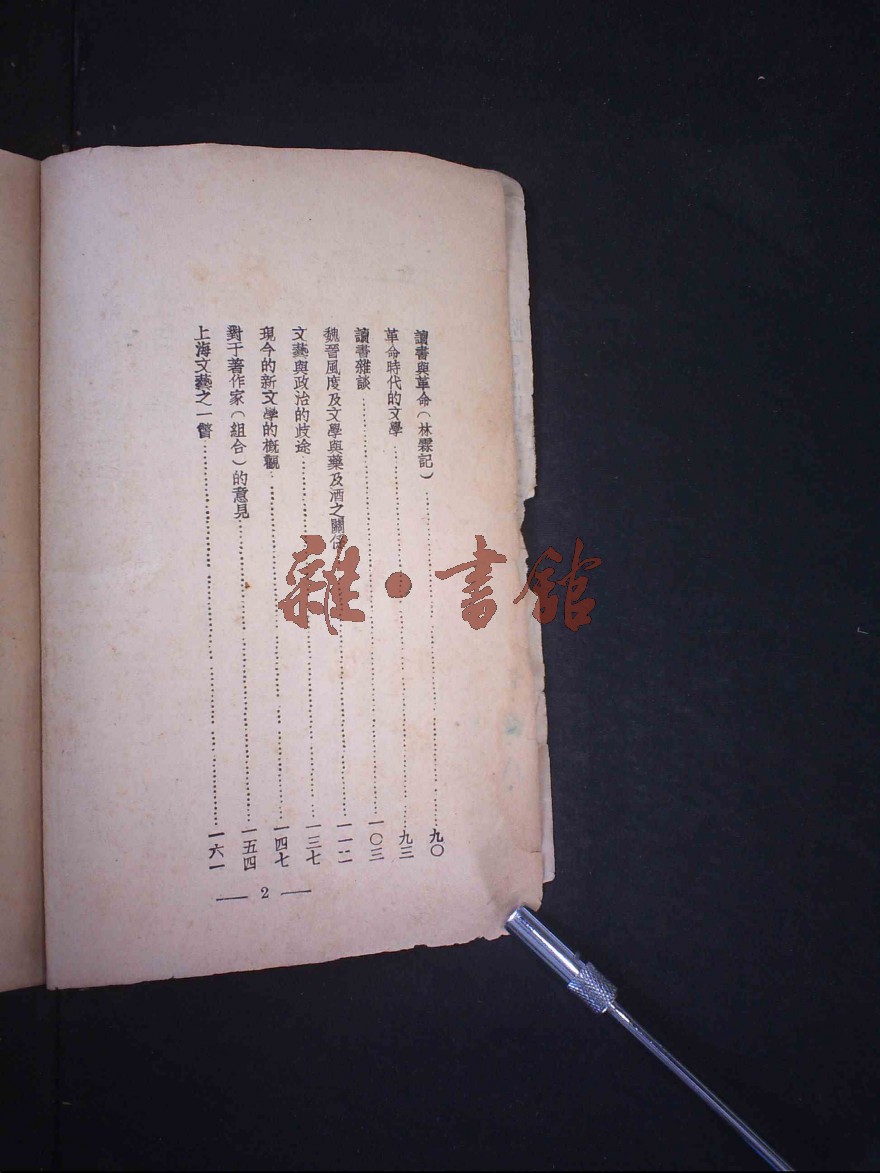 讀書與革命(林霖記)……九〇
革命時代的文學……九三
讀書雜談……一〇三
魏晉風度及文學與藥及酒之關係……一一二
文藝與政治的歧途……一三七
現今的新文學的概觀……一四七
對于著作家(組合)的意見……一五四
上海文藝之一瞥……一六一
— 2 —
雜·書館